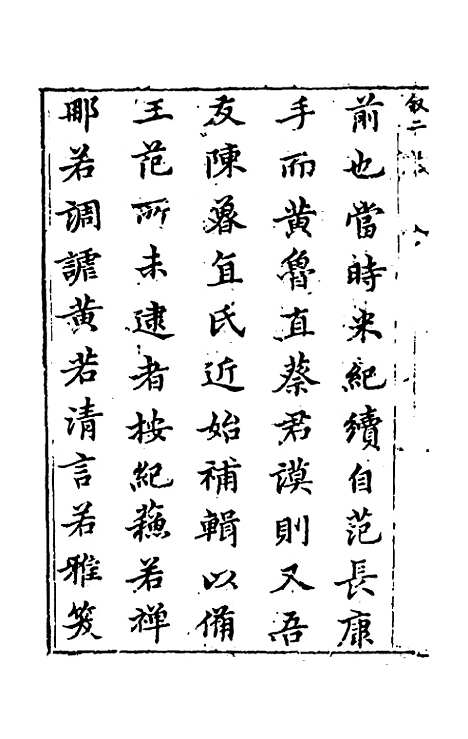 叙二
前也當時米紀續自范長康
手而黃魯直蔡君謨則又吾
友陳蓐宜氏近始補輯以備
王范所未逮者按紀蘓若禅
那若調謔黃若清言若雅笑